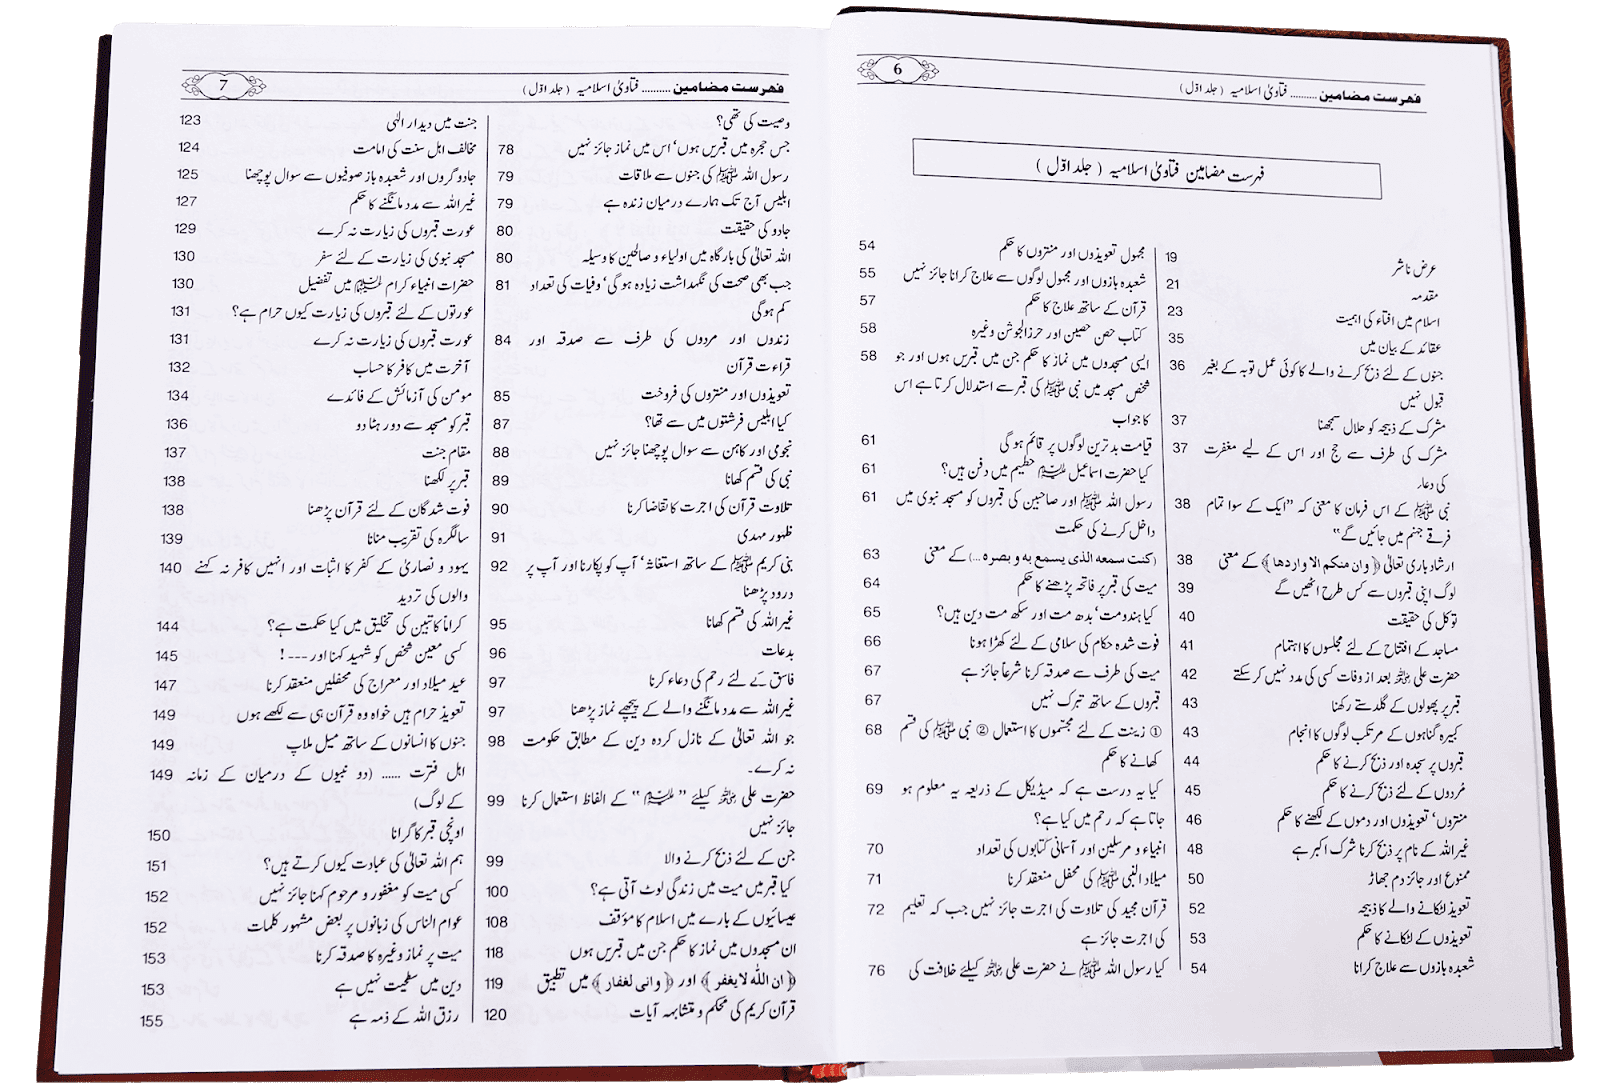 6
فہرست مضامین .......... فتاویٰ اسلامیہ (جلد اوّل)
فہرست مضامین فتاویٰ اسلامیہ (جلد اوّل)
عرض ناشر 19
مقدمہ 21
اسلام میں افتاء کی اہمیت 23
عقائد کے بیان میں 35
جنوں کے لئے ذبح کرنے والے کا کوئی عمل توبہ کے بغیر 36
قبول نہیں
مشرک کے ذبیحہ کو حلال سمجھنا 37
مشرک کی طرف سے حج اور اس کے لیے مغفرت 37
کی دعار
نبی ﷺ کے اس فرمان کا معنی کہ "ایک کے سوا تمام 38
فرقے جہنم میں جائیں گے"
ارشاد باری تعالیٰ ﴿وان منکم الا واردھا﴾ کے معنی 38
لوگ اپنی قبروں سے کس طرح اٹھیں گے 39
توکل کی حقیقت 40
مساجد کے افتتاح کے لئے مجلسوں کا اہتمام 41
حضرت علی رضی اللہ عنہ بعد از وفات کسی کی مدد نہیں کر سکتے 42
قبر پر پھولوں کے گلدستے رکھنا 43
کبیرہ گناہوں کے مرتکب لوگوں کا انجام 43
قبروں پر سجدہ اور ذبح کرنے کا حکم 44
مُردوں کے لئے ذبح کرنے کا حکم 45
منتروں' تعویذوں اور دموں کے لکھنے کا حکم 46
غیر اللہ کے نام پر ذبح کرنا شرک اکبر ہے 48
ممنوع اور جائز دم جھاڑ 50
تعویذ لٹکانے والے کا ذبیحہ 52
تعویذوں کے لٹکانے کا حکم 53
شعبدہ بازوں سے علاج کرانا 54
مجہول تعویذوں اور منتروں کا حکم 54
شعبدہ بازوں اور مجہول لوگوں سے علاج کرانا جائز نہیں 55
قرآن کے ساتھ علاج کا حکم 57
کتاب حصن حصین اور حرز الجوشن وغیرہ 58
ایسی مسجدوں میں نماز کا حکم جن میں قبریں ہوں اور جو 58
شخص مسجد میں نبی ﷺ کی قبر سے استدلال کرتا ہے اس
کا جواب
قیامت بدترین لوگوں پر قائم ہو گی 61
کیا حضرت اسماعیل علیہ السلام حطیم میں دفن ہیں؟ 61
رسول اللہ ﷺ اور صاحبین کی قبروں کو مسجد نبوی میں 61
داخل کرنے کی حکمت
(کنت سمعه الذی یسمع به و بصره ...) کے معنی 63
میت کی قبر پر فاتحہ پڑھنے کا حکم 64
کیا ہندومت' بدھ مت اور سکھ مت دین ہیں؟ 65
فوت شدہ حکام کی سلامی کے لئے کھڑا ہونا 66
میت کی طرف سے صدقہ کرنا شرعاً جائز ہے 67
قبروں کے ساتھ تبرک نہیں 67
① زینت کے لئے مجسموں کا استعمال ② نبی ﷺ کی قسم 68
کھانے کا حکم
کیا یہ درست ہے کہ میڈیکل کے ذریعہ یہ معلوم ہو 69
جاتا ہے کہ رحم میں کیا ہے؟
انبیاء و مرسلین اور آسمانی کتابوں کی تعداد 70
میلاد النبی ﷺ کی محفل منعقد کرنا 71
قرآن مجید کی تلاوت کی اجرت جائز نہیں جب کہ تعلیم 72
کی اجرت جائز ہے
کیا رسول اللہ ﷺ نے حضرت علی رضی اللہ عنہ کیلئے خلافت کی 76
7
فہرست مضامین .......... فتاویٰ اسلامیہ (جلد اوّل)
وصیت کی تھی؟
جس حجرہ میں قبریں ہوں' اس میں نماز جائز نہیں 78
رسول اللہ ﷺ کی جنوں سے ملاقات 79
ابلیس آج تک ہمارے درمیان زندہ ہے 79
جادو کی حقیقت 80
اللہ تعالیٰ کی بارگاہ میں اولیاء و صالحین کا وسیلہ 80
جب بھی صحت کی نگہداشت زیادہ ہو گی' وفیات کی تعداد 81
کم ہو گی
زندوں اور مردوں کی طرف سے صدقہ اور 84
قراءت قرآن
تعویذوں اور منتروں کی فروخت 85
کیا ابلیس فرشتوں میں سے تھا؟ 87
نجومی اور کاہن سے سوال پوچھنا جائز نہیں 88
نبی کی قسم کھانا 89
تلاوت قرآن کی اجرت کا تقاضا کرنا 90
ظہور مہدی 91
نبی کریم ﷺ کے ساتھ استغاثہ' آپ کو پکارنا اور آپ پر 92
درود پڑھنا
غیر اللہ کی قسم کھانا 95
بدعات 96
فاسق کے لئے رحم کی دعاء کرنا 97
غیر اللہ سے مدد مانگنے والے کے پیچھے نماز پڑھنا 97
جو اللہ تعالیٰ کے نازل کردہ دین کے مطابق حکومت 98
نہ کرے۔
حضرت علی رضی اللہ عنہ کیلئے "علیہ السلام" کے الفاظ استعمال کرنا 99
جائز نہیں
جن کے لئے ذبح کرنے والا 99
کیا قبر میں میت میں زندگی لوٹ آتی ہے؟ 100
عیسائیوں کے بارے میں اسلام کا مؤقف 108
ان مسجدوں میں نماز کا حکم جن میں قبریں ہوں 118
﴿ان اللّٰه لا یغفر﴾ اور ﴿وانی لغفار﴾ میں تطبیق 119
قرآن کریم کی محکم و متشابہ آیات 120
جنت میں دیدار الٰہی 123
مخالف اہل سنت کی امامت 124
جادوگروں اور شعبدہ باز صوفیوں سے سوال پوچھنا 125
غیر اللہ سے مدد مانگنے کا حکم 127
عورت قبروں کی زیارت نہ کرے 129
مسجد نبوی کی زیارت کے لئے سفر 130
حضرات انبیاء کرام علیہم السلام میں تفضیل 130
عورتوں کے لئے قبروں کی زیارت کیوں حرام ہے؟ 131
عورت قبروں کی زیارت نہ کرے 131
آخرت میں کافر کا حساب 132
مومن کی آزمائش کے فائدے 134
قبر کو مسجد سے دور ہٹا دو 136
مقام جنت 137
قبر پر لکھنا 138
فوت شدگان کے لئے قرآن پڑھنا 138
سالگرہ کی تقریب منانا 139
یہود و نصاریٰ کے کفر کا اثبات اور انہیں کافر نہ کہنے 140
والوں کی تردید
کراماً کاتبین کی تخلیق میں کیا حکمت ہے؟ 144
کسی معین شخص کو شہید کہنا اور ---! 145
عید میلاد اور معراج کی محفلیں منعقد کرنا 147
تعویذ حرام ہیں خواہ وہ قرآن ہی سے لکھے ہوں 149
جنوں کا انسانوں کے ساتھ میل ملاپ 149
اہل فترت ...... (دو نبیوں کے درمیان کے زمانہ 149
کے لوگ)
اونچی قبر کا گرانا 150
ہم اللہ تعالیٰ کی عبادت کیوں کرتے ہیں؟ 151
کسی میت کو مغفور و مرحوم کہنا جائز نہیں 152
عوام الناس کی زبانوں پر بعض مشہور کلمات 152
میت پر نماز وغیرہ کا صدقہ کرنا 153
دین میں سطحیت نہیں ہے 153
رزق اللہ کے ذمہ ہے 155